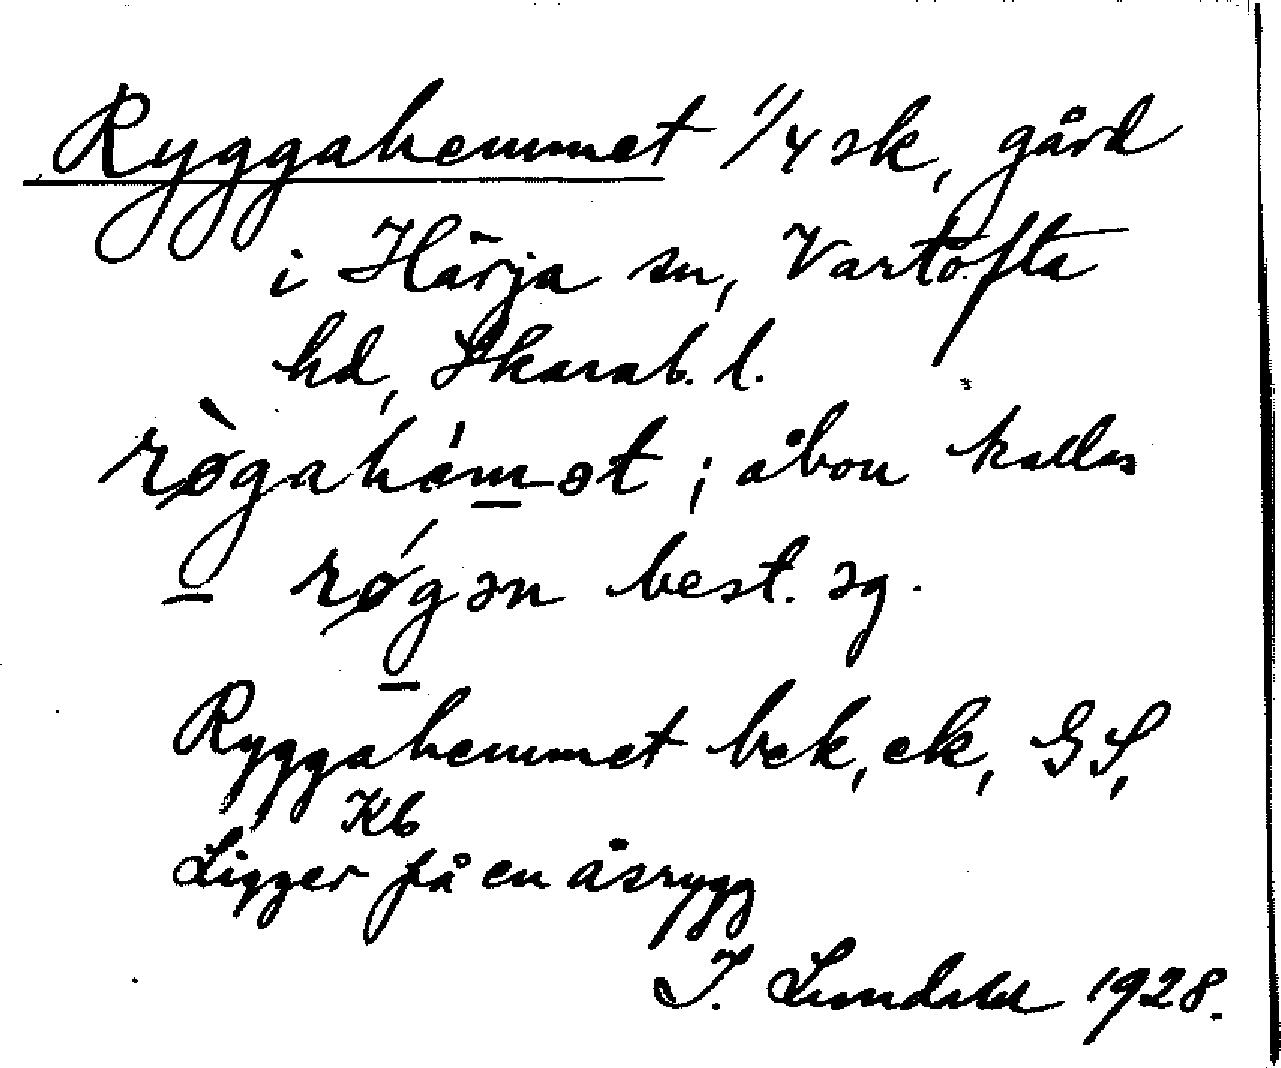 Ryggahemmet 1/4 sk, gård
i Härja sn, Vartofta
hd, Skarab. l.
rø̀gahǻmət ; åbon kallas
rǿgən best. sg.
Ryggahemmet bek, ek, GS,
Kb
Ligger på en åsrygg
I. Lundahl 1928.